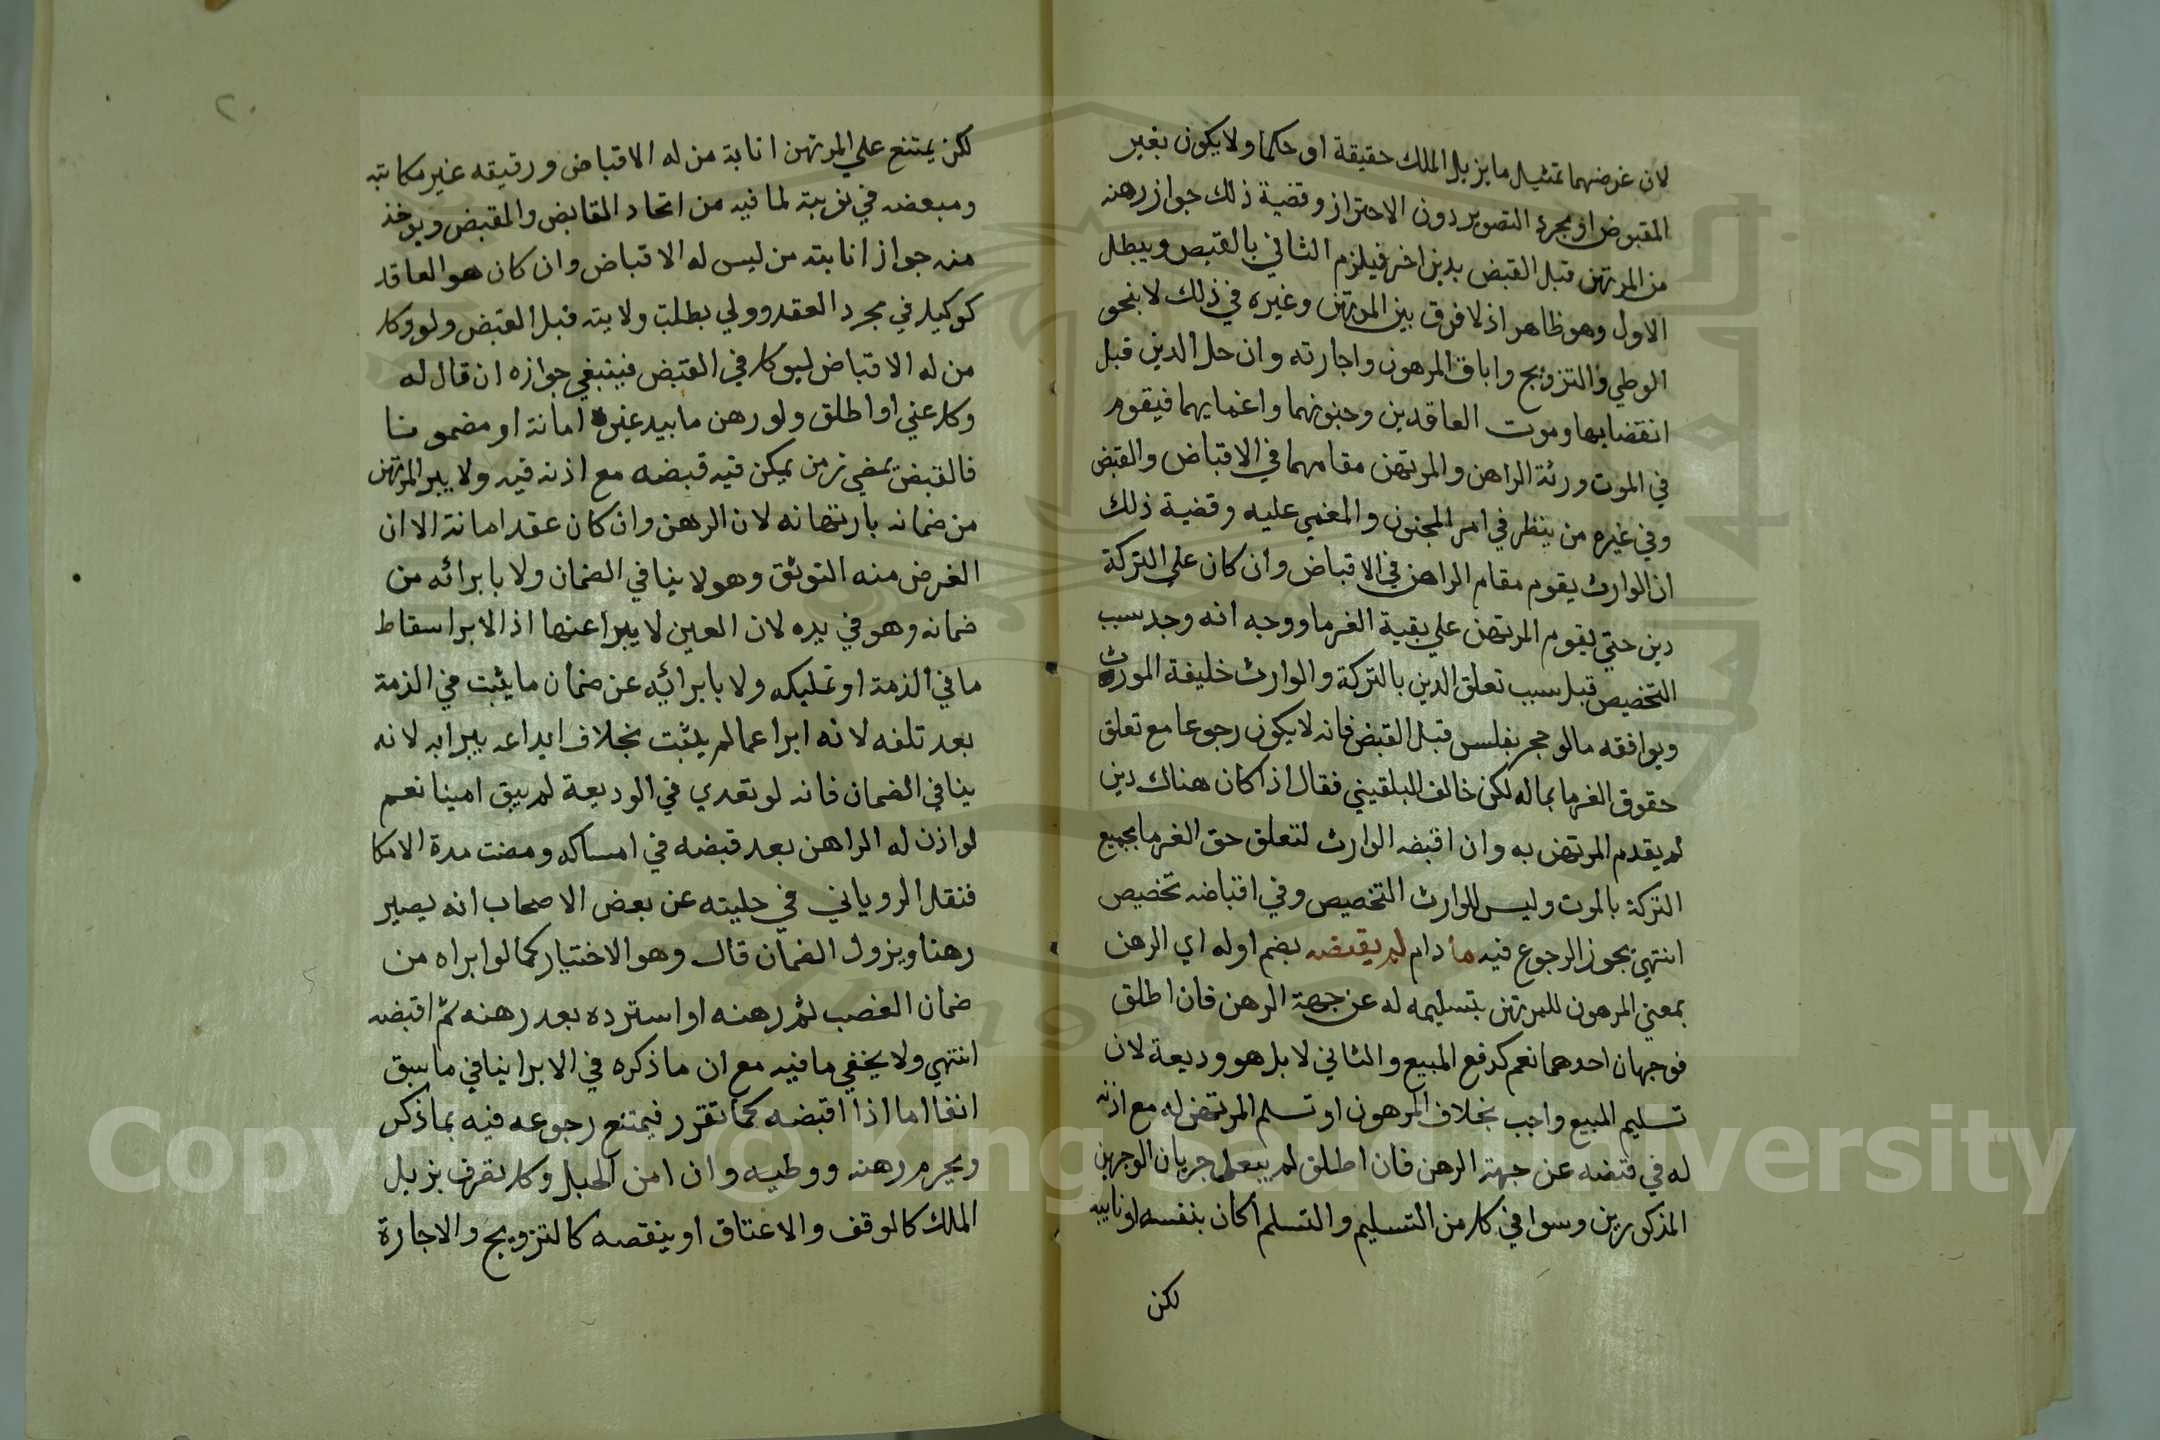 لان غرضهما تمثيل ما يزيل الملك حقيقة او حكما ولا يكون بغير
المقبوض او مجرد التصوير دون الاحتراز وقضية ذلك جواز رهنه
من المرتهن قبل القبض بدين اخر فيلزم الثاني بالقبض ويبطل
الاول وهو ظاهر اذ لا فرق بين المرتهن وغيره في ذلك لا بنحو
الوطي والتزويج واباق المرهون واجارته وان حل الدين قبل
انقضايها وموت العاقدين وجنونهما واغمايهما فيقوم
في الموت ورثة الراهن والمرتهن مقامهما في الاقباض والقبض
وفي غيره من ينظر في امر المجنون والمغمي عليه وقضية ذلك
ان الوارث يقوم مقام الراهن في الاقباض وان كان علي التركة
دين حتي يقوم المرتهن علي بقية الغرما ووجه انه وجد سبب
التخصيص قبل سبب تعلق الدين بالتركة والوارث خليفة المورث
ويوافقه ما لو حجر بفلس قبل القبض فانه لا يكون رجوعا مع تعلق
حقوق الغرما بماله لكن خالف البلقيني فقال اذا كان هناك دين
لم يقدم المرتهن به وان اقبضه الوارث لتعلق حق الغرما بجميع
التركة بالموت وليس للوارث التخصيص وفي اقباضه تخصيص
انتهي يجوز الرجوع فيه ما دام لم يقبضه بضم اوله اي الرهن
بمعني المرهون للمرتهن بتسليمه له عن جهة الرهن فان اطلق
فوجهان احدهما نعم كدفع المبيع والثاني لا بل هو وديعة لان
تسليم المبيع واجب بخلاف المرهون او تسلم المرتهن له مع اذنه
له في قبضه عن جهة الرهن فان اطلق لم يبعد جريان الوجهين
المذكورين وسوا في كل من التسليم والتسلم اكان بنفسه او نايبه
لكن
٢٠
لكن يمتنع علي المرتهن انابة من له الاقباض ورقيقه غير مكاتبه
ومبعضه في نوبته لما فيه من اتحاد القابض والمقبض ويوخذ
منه جواز انابته من ليس له الاقباض وان كان هو العاقد
كوكيل في مجرد العقد وولي بطلت ولايته قبل القبض ولو وكل
من له الاقباض ليوكل في القبض فينبغي جوازه ان قال له
وكل عني او اطلق ولو رهن ما بيد غيره امانة او مضمونا
فالقبض بمضي زمن يمكن فيه قبضه مع اذنه فيه ولا يبرا المرتهن
من ضمانه بارتهانه لان الرهن وان كان عقد امانة الا ان
الغرض منه التوثق وهو لا ينافي الضمان ولا بابرائه من
ضمانه وهو في يده لان العين لا يبرا عنها اذ الابرا اسقاط
ما في الذمة او تمليكه ولا بابرائه عن ضمان ما يثبت في الذمة
بعد تلفه لانه ابرا عما لم يثبت بخلاف ايداعه يبرا به لانه
ينافي الضمان فانه لو تعدي في الوديعة لم يبق امينا نعم
لو اذن له الراهن بعد قبضه في امساكه ومضت مدة الامكا
فنقل الروياني في حليته عن بعض الاصحاب انه يصير
رهنا ويزول الضمان قال وهو الاختيار كما لو ابراه من
ضمان الغصب ثم رهنه او استرده بعد رهنه ثم اقبضه
انتهي ولا يخفي ما فيه مع ان ما ذكره في الابرا ينافي ما سبق
انفا اما اذا اقبضه كما تقرر فيمتنع رجوعه فيه بما ذكر
ويحرم رهنه ووطيه وان امن الحبل وكل تصرف يزيل
الملك كالوقف والاعتاق او ينقصه كالتزويج والاجارة
Copyright © King Saud University